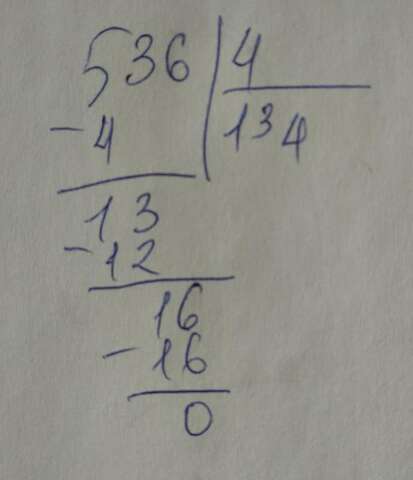 536 4
-4 134
13
-12
16
-16
0